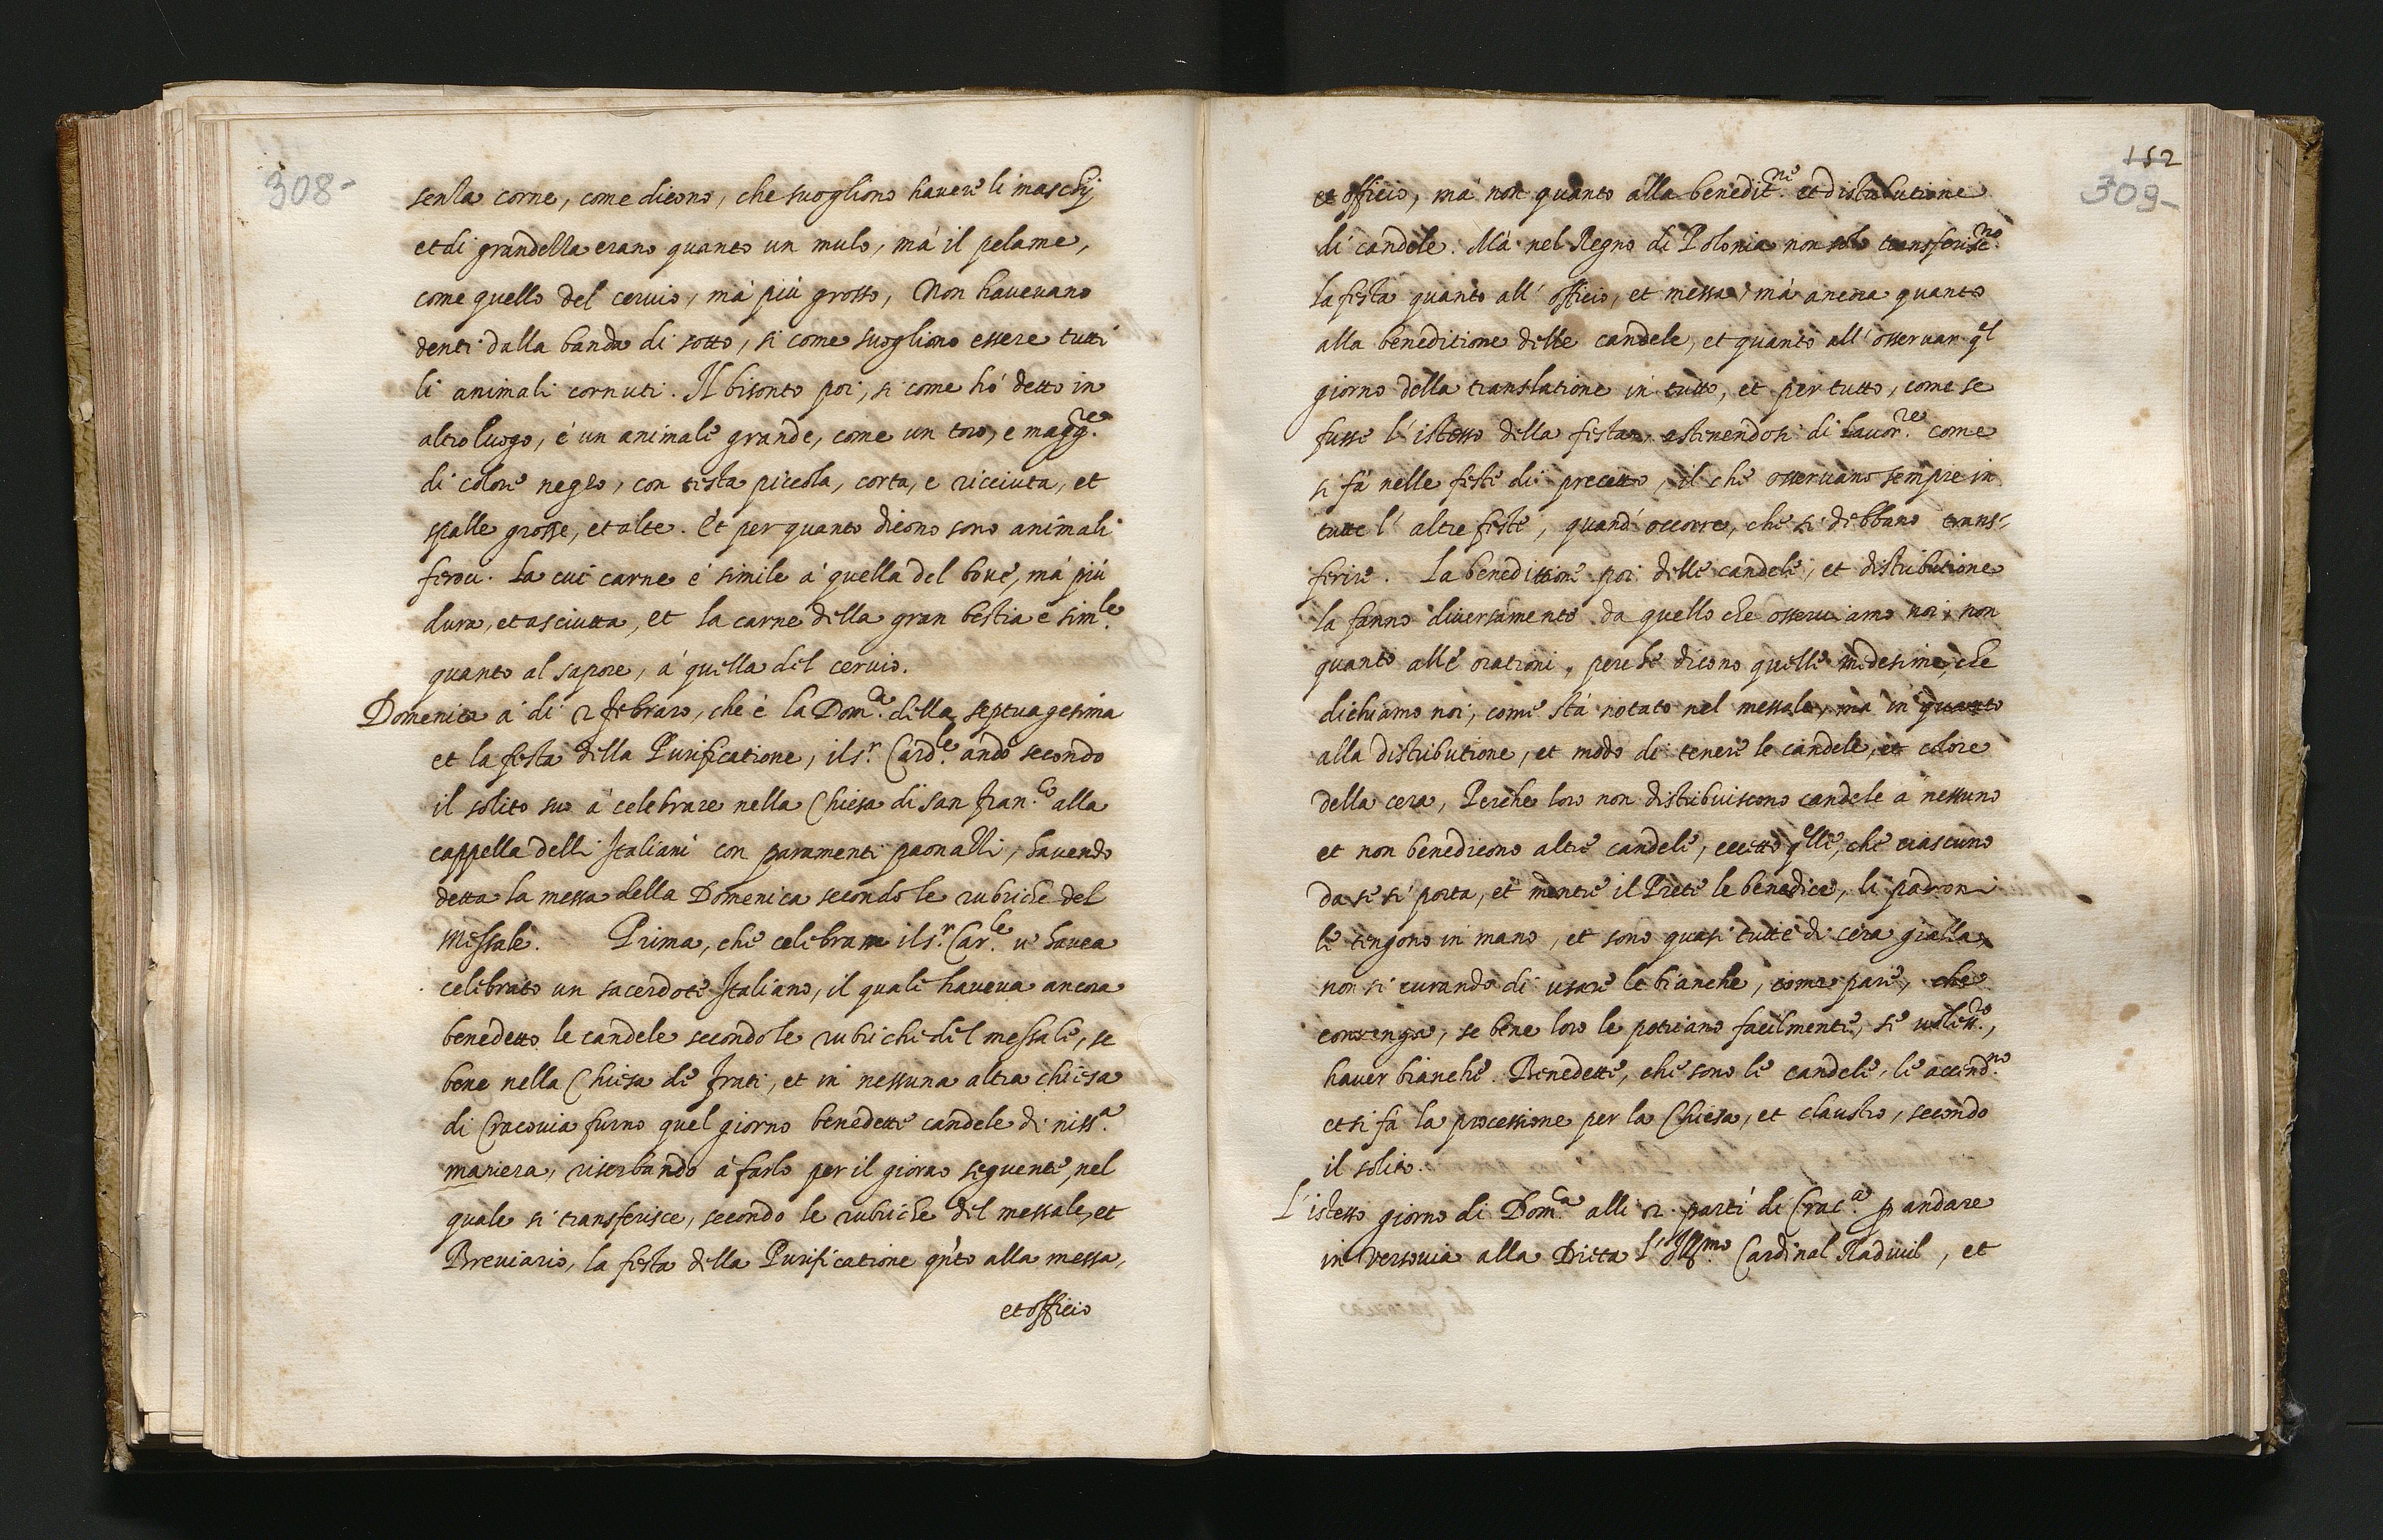 308-
senza corne, come dicono, che sogliono havere li maschij
et di grandezza erano quanto un mulo, mà il pelame,
come quello del cervio, mà più grosso, Non havevano
denti dalla banda di sotto, si come sogliono essere tutti
li animali cornuti. Il bisonto poi, si come hò detto in
altro luogo, è un animale grande, come un toro, e magg.re
di colore negro, con testa piccola, corta, e ricciuta, et
spalle grosse, et alte. Et per quanto dicono sono animali
feroci. La cui carne è simile à quella del bove, mà più
dura, et asciutta, et la carne della gran bestia è sim.le
quanto al sapore, à quella del cervio.
Domenica à di 2 febraro, che è la Dom.ca della septuagesima
et la festa della Purificatione, il s.r Card.le andò secondo
il solito suo à celebrare nella Chiesa di san Fran.co alla
cappella delli Italiani con paramenti paonazzi, havendo
detta la messa della Domenica secondo le rubriche del
Messale. Prima, che celebrare il s.r Car.le vi havea
celebrato un sacerdote Italiano, il quale haveva ancora
benedetto le candele secondo le rubriche del messale, se
bene nella Chiesa de frati, et in nessuna altra chiesa
di Cracovia furno quel giorno benedette candele di niss.a
maniera, riserbando à farlo per il giorno seguente, nel
quale si transferisce, secondo le rubriche del messale, et
Breviario, la festa della Purificatione qnto alla messa,
et officio
152
309-
et officio, mà non quanto alla benedit.ne et distributione
di candele. Mà nel Regno di Polonia non solo transferisc.no
la festa quanto all' officio, et messa, mà ancora quanto
alla beneditione delle candele, et quanto all' osservar ql
giorno della translatione in tutto, et per tutto, come se
fusse l' istesso della festa, astenendosi di lavor.re come
si fà nelle feste di precetto, il che osservano sempre in
tutte l' altre feste, quand' occorre, che si debbano trans-
ferire. La benedittione poi delle candele, et distributione
la fanno diversamente da quello che osserviamo noi, non
quanto alle orationi, perche dicono quelle medesime, che
dichiamo noi, come stà notato nel messale, mà in quanto
alla distributione, et modo di tenere le candele, et colore
della cera, Perche loro non distribuiscono candele à nessuno
et non benedicono altre candele, eccetto qlle, che ciascuno
da se si porta, et mentre il Prete le benedice, li padroni
le tengono in mano, et sono quasi tutte di cera gialla,
non si curando di usare le bianche, come pare, che
convenga, se bene loro le potriano facilmente, se voless.ro,
haver bianche. Benedette, che sono le candele, le accend.no
et si fà la processione per la Chiesa, et claustro, secondo
il solito.
L' istesso giorno di Dom.ca alli 2. partì di Crac.a p andare
in Versovia alla Dieta l' Ill.mo Cardinal Radivil, et